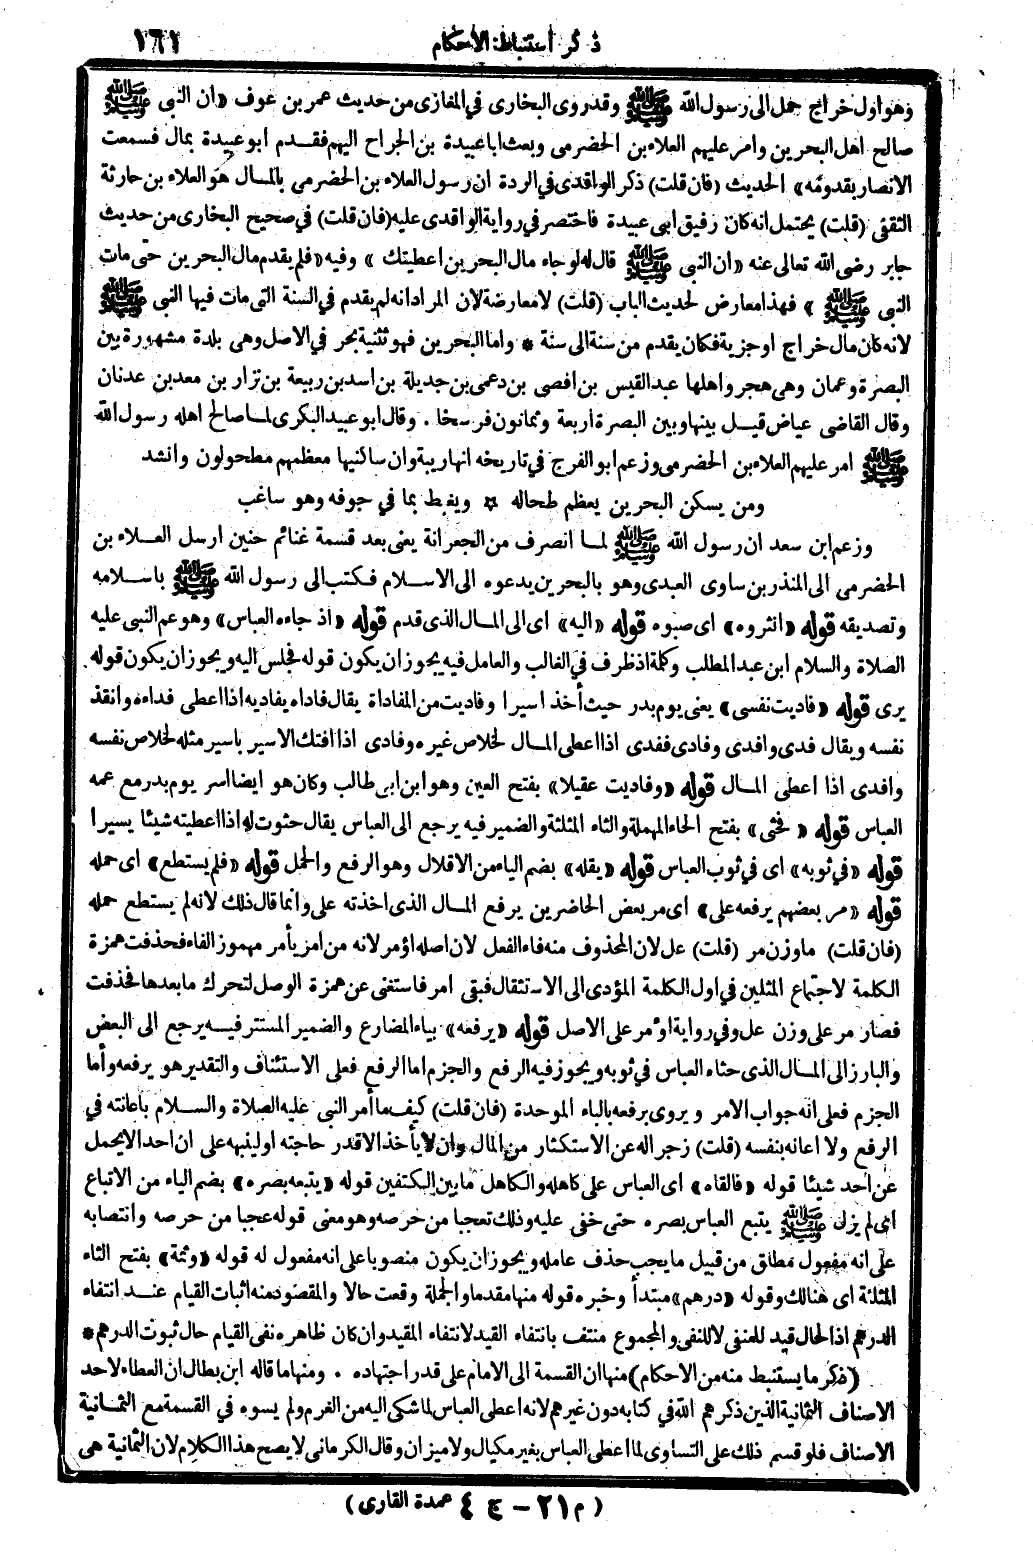 ذكر استنباط الأحكام ١٦١
وهو اول خراج حمل الى رسول الله ﷺ وقد روى البخارى في المغازى من حديث عمر بن عوف «ان النبى ﷺ
صالح اهل البحرين وامر عليهم العلاء بن الحضرمى وبعث ابا عبيدة بن الجراح اليهم فقدم ابو عبيدة بمال فسمعت
الانصار بقدومه» الحديث (فان قلت) ذكر الواقدى في الردة ان رسول العلاء بن الحضرمى بالمال هو العلاء بن حارثة
الثقفى (قلت) يحتمل انه كان رفيق ابى عبيدة فاختصر في رواية الواقدى عليه (فان قلت) في صحيح البخارى من حديث
جابر رضى الله تعالى عنه «ان النبى ﷺ قال له لو جاء مال البحرين اعطيتك» وفيه «فلم يقدم مال البحرين حتى مات
النبى ﷺ» فهذا معارض لحديث الباب (قلت) لا معارضة لان المراد انه لم يقدم في السنة التى مات فيها النبى ﷺ
لانه كان مال خراج او جزية فكان يقدم من سنة الى سنة * واما البحرين فهو تثنية بحر في الاصل وهى بلدة مشهورة بين
البصرة وعمان وهى هجر واهلها عبد القيس بن افصى بن دعمى بن جديلة بن اسد بن ربيعة بن نزار بن معد بن عدنان
وقال القاضى عياض قيل بينها وبين البصرة اربعة وثمانون فرسخا . وقال ابو عبيد البكرى لما صالح اهله رسول الله
ﷺ امر عليهم العلاء بن الحضرمى وزعم ابو الفرج في تاريخه انها وبية وان ساكنيها معظمهم مطحولون وانشد
ومن يسكن البحرين يعظم طحاله ☆ ويغبط بما في جوفه وهو ساغب
وزعم ابن سعد ان رسول الله ﷺ لما انصرف من الجعرانة يعنى بعد قسمة غنائم حنين ارسل العلاء بن
الحضرمى الى المنذر بن ساوى العبدى وهو بالبحرين يدعوه الى الاسلام فكتب الى رسول الله ﷺ باسلامه
وتصديقه قوله «انثروه» اى صبوه قوله «اليه» اى الى المال الذى قدم قوله «اذ جاءه العباس» وهو عم النبى عليه
الصلاة والسلام ابن عبد المطلب وكلمة اذ ظرف في الغالب والعامل فيه يجوز ان يكون قوله فجلس اليه ويجوز ان يكون قوله
يرى قوله «فاديت نفسى» يعنى يوم بدر حيث أخذ اسيرا وفاديت من المفاداة يقال فاداه يفاديه اذا اعطى فداءه وانقذ
نفسه ويقال فدى وافدى وفادى ففدى اذا اعطى المال لخلاص غيره وفادى اذا افتك الاسير باسير مثله لخلاص نفسه
وافدى اذا اعطى المال قوله «وفاديت عقيلا» بفتح العين وهو ابن ابى طالب وكان هو ايضا اسر يوم بدر مع عمه
العباس قوله «فحثى» بفتح الحاء المهملة والثاء المثلثة والضمير فيه يرجع الى العباس يقال حثوت له اذا اعطيته شيئا يسيرا
قوله «في ثوبه» اى في ثوب العباس قوله «يقله» بضم الياء من الاقلال وهو الرفع والحمل قوله «فلم يستطع» اى حمله
قوله «مر بعضهم يرفعه على» اى مر بعض الحاضرين يرفع المال الذى اخذته على وانما قال ذلك لانه لم يستطع حمله
(فان قلت) ما وزن مر (قلت) عل لان المحذوف منه فاء الفعل لان اصله اؤمر لانه من امر يأمر مهموز الفاء فحذفت همزة
الكلمة لاجتماع المثلين في اول الكلمة المؤدى الى الاستثقال فبقى امر فاستغنى عن همزة الوصل لتحرك ما بعدها فحذفت
فصار مر على وزن عل وفي رواية اؤمر على الاصل قوله «يرفعه» بياء المضارع والضمير المستتر فيه يرجع الى البعض
والبارز الى المال الذى حثاه العباس في ثوبه ويجوز فيه الرفع والجزم اما الرفع فعلى الاستئناف والتقدير هو يرفعه وأما
الجزم فعلى انه جواب الامر ويروى برفعه بالباء الموحدة (فان قلت) كيف ما أمر النبى عليه الصلاة والسلام باعانته في
الرفع ولا اعانه بنفسه (قلت) زجرا له عن الاستكثار من المال وان لا يأخذ الا قدر حاجته او لينبهه على ان احدا لا يحمل
عن احد شيئا قوله «فالقاه» اى العباس على كاهله والكاهل ما بين الكتفين قوله «يتبعه بصره» بضم الياء من الاتباع
اى لم يزل ﷺ يتبع العباس بصره حتى خفى عليه وذلك تعجبا من حرصه وهو معنى قوله عجبا من حرصه وانتصابه
على انه مفعول مطلق من قبيل ما يجب حذف عامله ويجوز ان يكون منصوبا على انه مفعول له قوله «وثمة» بفتح الثاء
المثلثة اى هنالك وقوله «درهم» مبتدأ وخبره قوله منها مقدما والجملة وقعت حالا والمقصود منه اثبات القيام عند انتفاء
الدرهم اذ الحال قيد للمنفى لا للنفى والمجموع منتف بانتفاء القيد لانتفاء المقيد وان كان ظاهره نفى القيام حال ثبوت الدرهم *
(ذكر ما يستنبط منه من الاحكام) منها ان القسمة الى الامام على قدر اجتهاده . ومنها ما قاله ابن بطال ان العطاء لاحد
الاصناف الثمانية الذين ذكرهم الله في كتابه دون غيرهم لانه اعطى العباس لما شكى اليه من الغرم ولم يسوه في القسمة مع الثمانية
الاصناف فلو قسم ذلك على التساوى لما اعطى العباس بغير مكيال ولا ميزان وقال الكرمانى لا يصح هذا الكلام لان الثمانية هى
(م ٢١ - ج ٤ عمدة القارى)